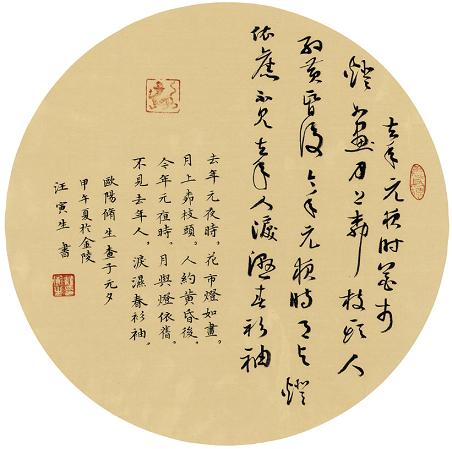 去年元夜時花市
燈如畫月上柳枝頭人
約黃昏後今年元夜時月与燈
依舊不見去年人淚濕春衫袖
去年元夜時，花市燈如畫，
月上柳枝頭，人約黃昏後。
今年元夜時，月與燈依舊，
不見去年人，淚濕春衫袖。
歐陽脩生查子元夕
甲午夏於金陵
汪寅生書